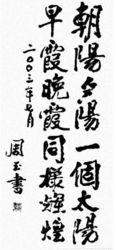 朝陽夕陽一個太陽
早霞晚霞同樣燦煌
二〇〇三年七月
周玉書